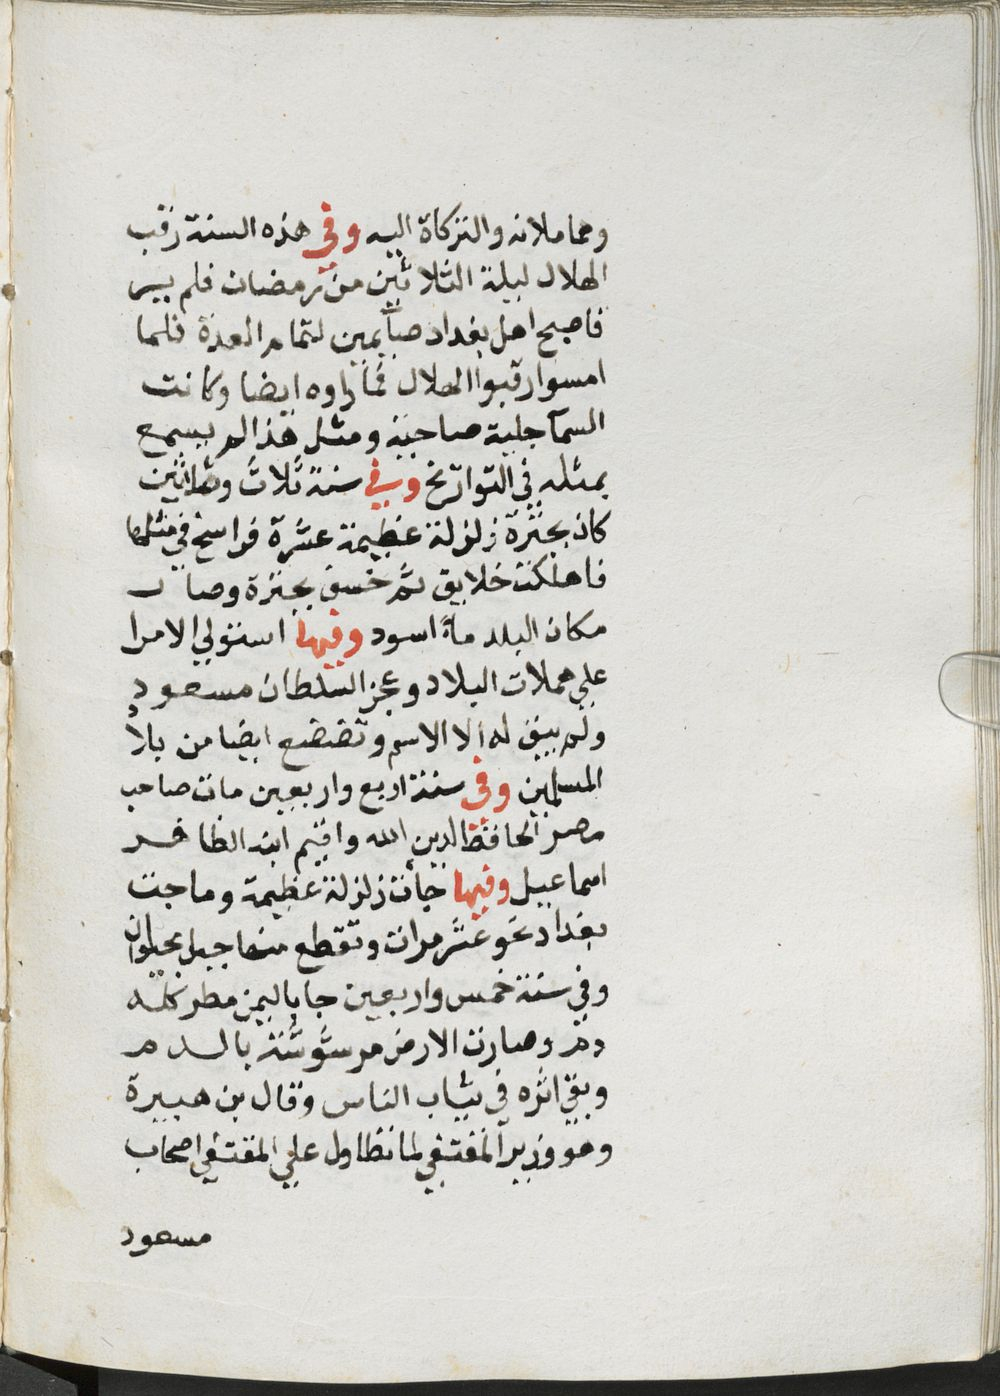 ومعاملاته والتركاة اليه وفي هذه السنة رقب
الهلال ليلة الثلاثين من رمضان فلم يير
فاصبح اهل بغداد صائمين لتمام العدة فلما
امسوا رقبوا الهلال فما راوه ايضا وكانت
السمآ جلية صاحية ومثل هذا لم يسمع
بمثله في التواريخ وفي سنة ثلاث وثلاثين
كان بجنزة زلزلة عظيمة عشرة فراسخ في مثلها
فاهلكت خلايق ثم خسف بجنزة وصار
مكان البلد مآءً اسود وفيها استولي الامرا
علي مملات البلاد وعجز السلطان مسعود
ولم يبق له الا الاسم وتضضع ايضا من بلا
المسلمين وفي سنة اربع واربعين مات صاحب
مصر الحافظ الدين الله واقيم ابنه الظافر
اسماعيل وفيها جأت زلزلة عظيمة وماجت
بغداد نحو عشر مرات وتقطع منها جبل بحلوان
وفي سنة خمس واربعين جا باليمن مطر كله
دم وصارت الارض مرشوشة بالدم
وبقي اثره في ثياب الناس وقال بن هبيرة
وهو وزير المقتفي لما تطاول علي المقتفي اصحاب
مسعود